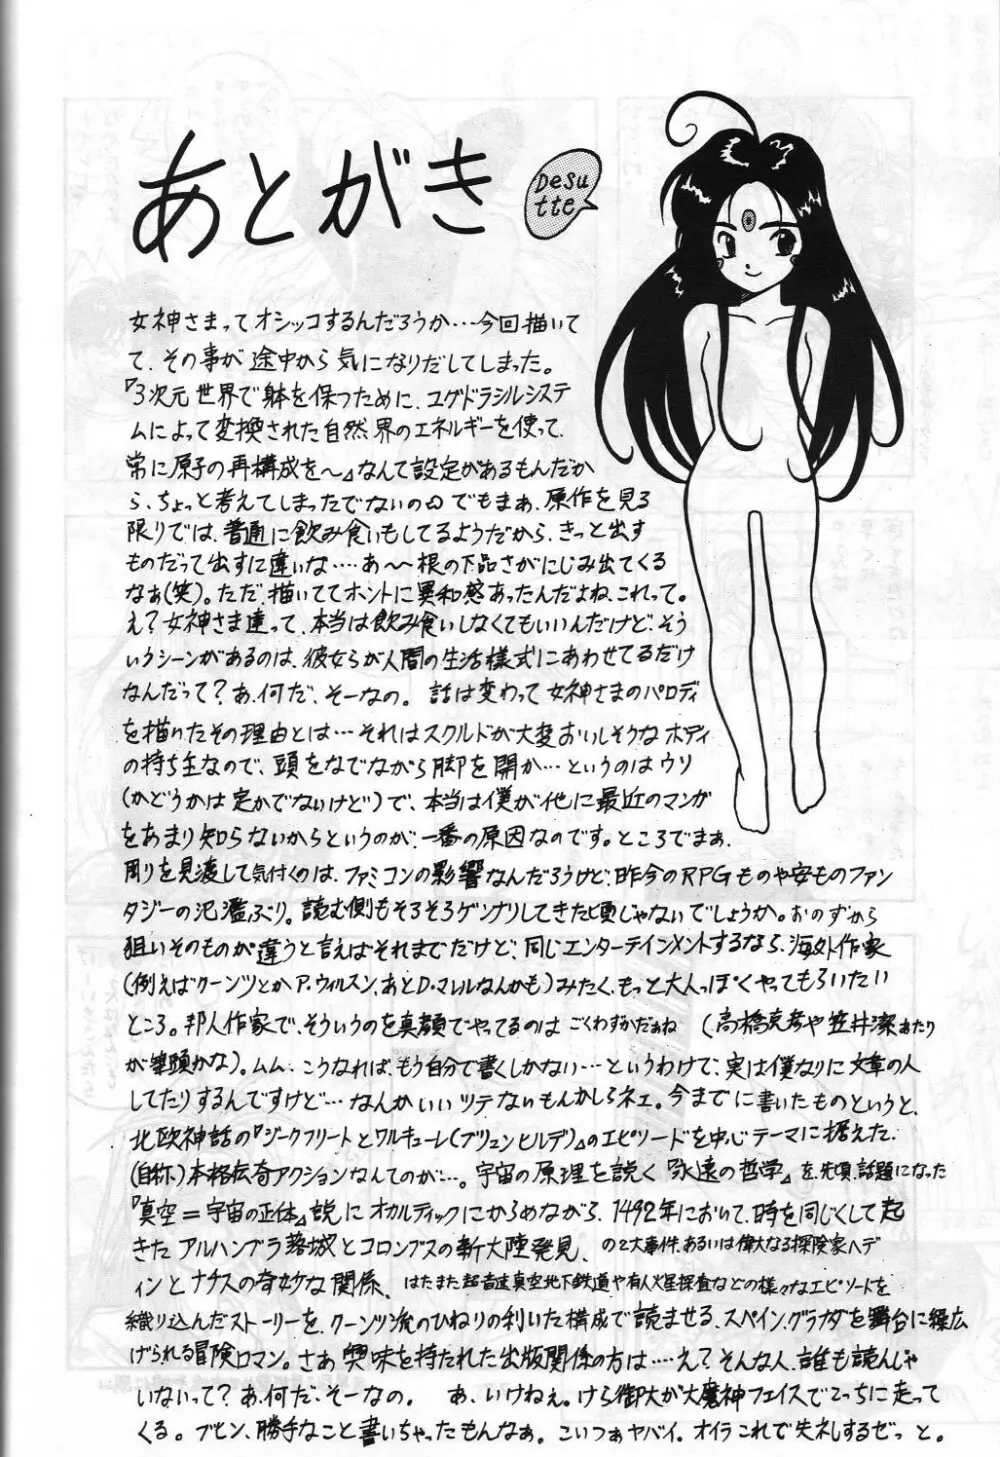 あとがき
Desu
tte
女神さまってオシッコするんだろうか…今回描いて
て、その事が途中から気になりだしてしまった。
『3次元世界で躰を保つために、ユグドラシルシステ
ムによって変換された自然界のエネルギーを使って、
常に原子の再構成を〜』なんて設定があるもんだか
ら、ちょっと考えてしまったでないの。でもまぁ、原作を見る
限りでは、普通に飲み食いもしてるようだから、きっと出す
ものだって出すに違いな……あ〜〜根の下品さがにじみ出てくる
なぁ(笑)。ただ、描いててホントに異和感あったんだよね、これって。
え?女神さま達って、本当は飲み食いしなくてもいいんだけど、そう
いうシーンがあるのは、彼女らが人間の生活様式にあわせてるだけ
なんだって?あ、何だ、そーなの。話は変わって女神さまのパロディ
を描いたその理由とは…それはスクルドが大変おいしそうなボディ
の持ち主なので、頭をなでながら脚を開か…というのはウソ
(かどうかは定かでないけど)で、本当は僕が他に最近のマンガ
をあまり知らないからというのが、一番の原因なのです。ところでまぁ、
周りを見渡して気付くのは、ファミコンの影響なんだろうけど、昨今のRPGものや安ものファン
タジーの氾濫ぶり。読む側もそろそろゲンナリしてきた頃じゃないでしょうか。おのずから
狙いそのものが違うと言えばそれまでだけど、同じエンターテインメントするなら、海外作家
(例えばクーンツとかA.ウィルスン、あとD.マレルなんかも)みたく、もっと大人っぽくやってもらいたい
ところ。邦人作家で、そういうのを真顔でやってるのはごくわずかだぁね(高橋克彦や笠井潔あたり
が筆頭かな)。ムム…こうなれば、もう自分で書くしかない…というわけで、実は僕なりに文章の人
してたりするんですけど…なんかいいツテないもんかしらネェ。今までに書いたものというと、
北欧神話の『ジークフリートとワルキューレ(ブリュンヒルデ)』のエピソードを中心テーマに据えた、
(自称)本格伝奇アクションなんてのが…。宇宙の原理を説く『永遠の哲学』を、先頃、話題になった
『真空=宇宙の正体』説にオカルティックにからめながら、1492年において、時を同じくして起
きたアルハンブラ落城とコロンブスの新大陸発見、の2大事件、あるいは偉大なる探険家ヘデ
ィンとナチスの奇妙な関係、はたまた超音速真空地下鉄道や有人火星探査などの様々なエピソードを
織り込んだストーリーを、クーンツ流のひねりの利いた構成で読ませる、スペイン、グラナダを舞台に繰広
げられる冒険ロマン。さぁ興味を持たれた出版関係の方は……え?そんな人、誰も読んじゃ
いないって?あ、何だ、そーなの。あ、いけねぇ。けら御大が大魔神フェイスでこっちに走って
くる。ブヒン、勝手なこと書いちゃったもんなぁ。こいつぁヤバイ。オイラこれで失礼するぜっと。